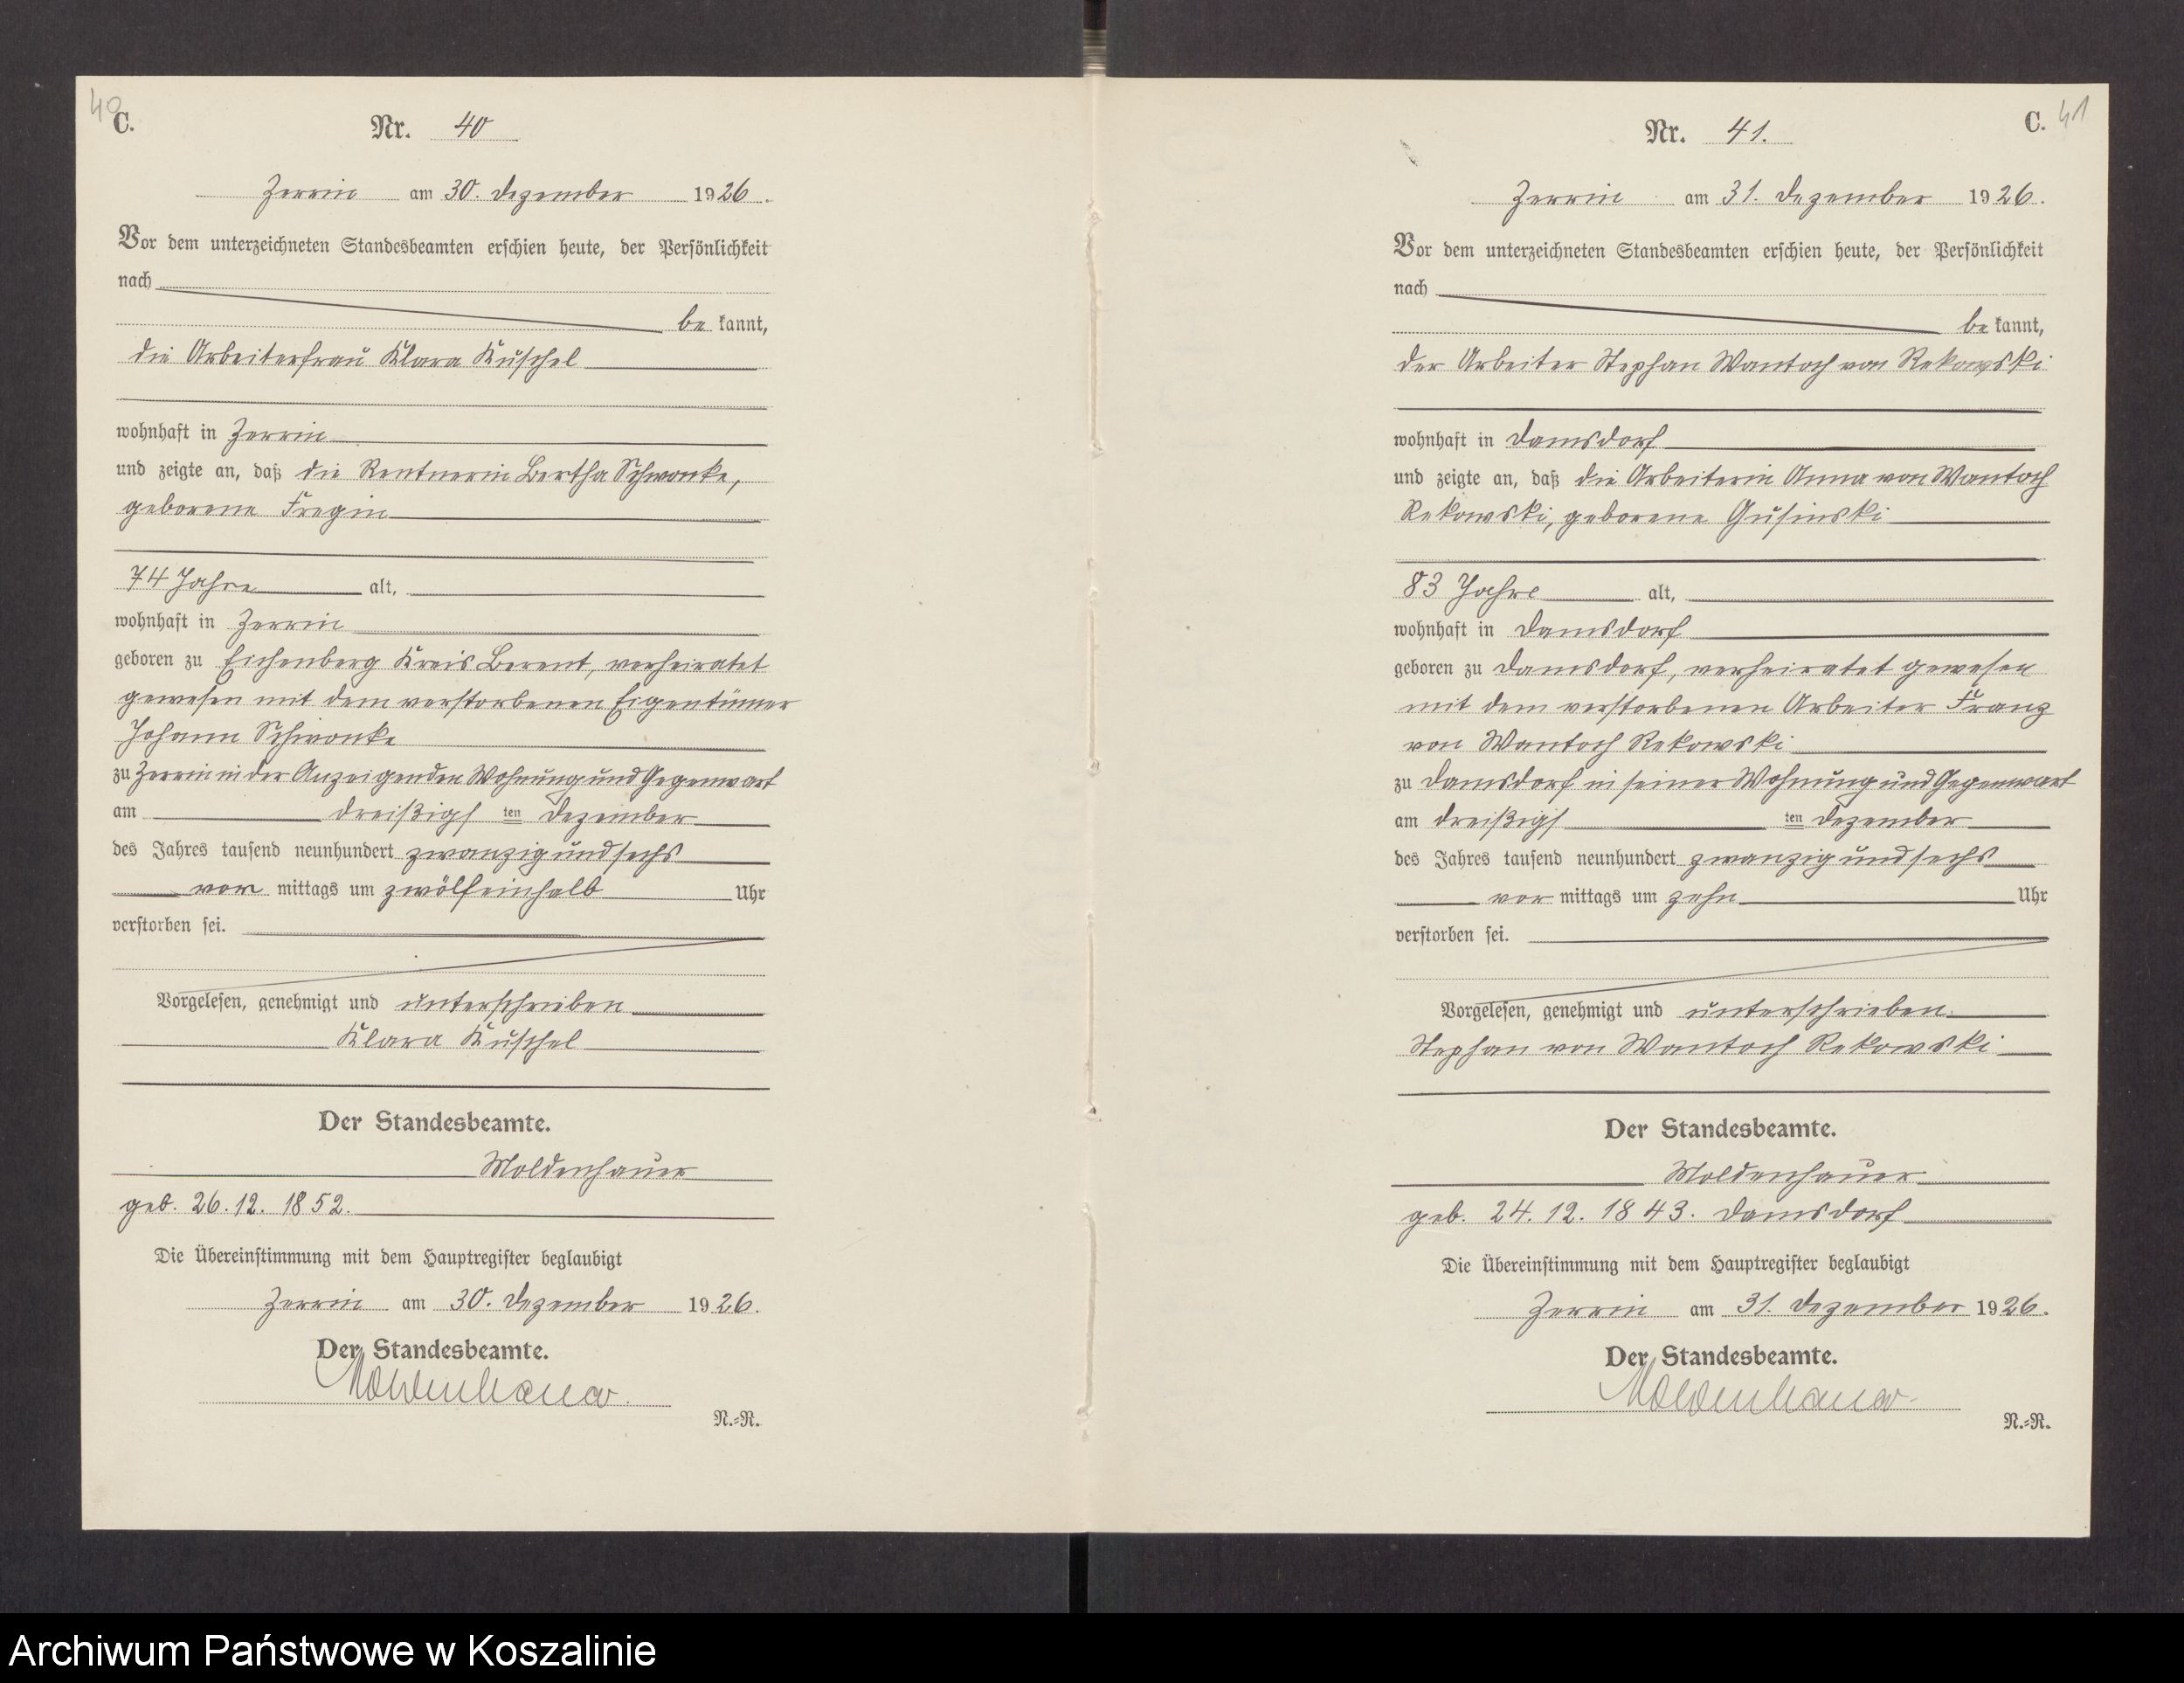 40
C.
Nr. 40
Zerrin am 30. Dezember 1926.
Vor dem unterzeichneten Standesbeamten erschien heute, der Persönlichkeit
nach
be kannt,
die Arbeiterfrau Klara Kuschel
wohnhaft in Zerrin
und zeigte an, daß die Rentnerin Bertha Schwonke,
geborene Fregin
74 Jahre alt,
wohnhaft in Zerrin
geboren zu Eichenberg Kreis Berent, verheiratet
gewesen mit dem verstorbenen Eigentümer
Johann Schwonke
zu Zerrin in der Anzeigenden Wohnung und Gegenwart
am dreißigs ten Dezember
des Jahres tausend neunhundert zwanzig und sechs
vor mittags um zwölfeinhalb Uhr
verstorben sei.
Vorgelesen, genehmigt und unterschrieben
Klara Kuschel
Der Standesbeamte.
Moldenhauer
geb. 26. 12. 1852.
Die Übereinstimmung mit dem Hauptregister beglaubigt
Zerrin am 30. Dezember 1926.
Der Standesbeamte.
Moldenhauer.
N.=R.
41
C.
Nr. 41.
Zerrin am 31. Dezember 1926.
Vor dem unterzeichneten Standesbeamten erschien heute, der Persönlichkeit
nach
be kannt,
der Arbeiter Stephan Wantoch von Rekowski
wohnhaft in Damsdorf
und zeigte an, daß die Arbeiterin Anna von Wantoch
Rekowski, geborene Gusinski
83 Jahre alt,
wohnhaft in Damsdorf
geboren zu Damsdorf, verheiratet gewesen
mit dem verstorbenen Arbeiter Franz
von Wantoch Rekowski
zu Damsdorf in seiner Wohnung und Gegenwart
am dreißigs ten Dezember
des Jahres tausend neunhundert zwanzig und sechs
vor mittags um zehn Uhr
verstorben sei.
Vorgelesen, genehmigt und unterschrieben.
Stephan von Wantoch Rekowski
Der Standesbeamte.
Moldenhauer
geb. 24. 12. 1843. Damsdorf
Die Übereinstimmung mit dem Hauptregister beglaubigt
Zerrin am 31. Dezember 1926.
Der Standesbeamte.
Moldenhauer.
N.=R.
Archiwum Państwowe w Koszalinie